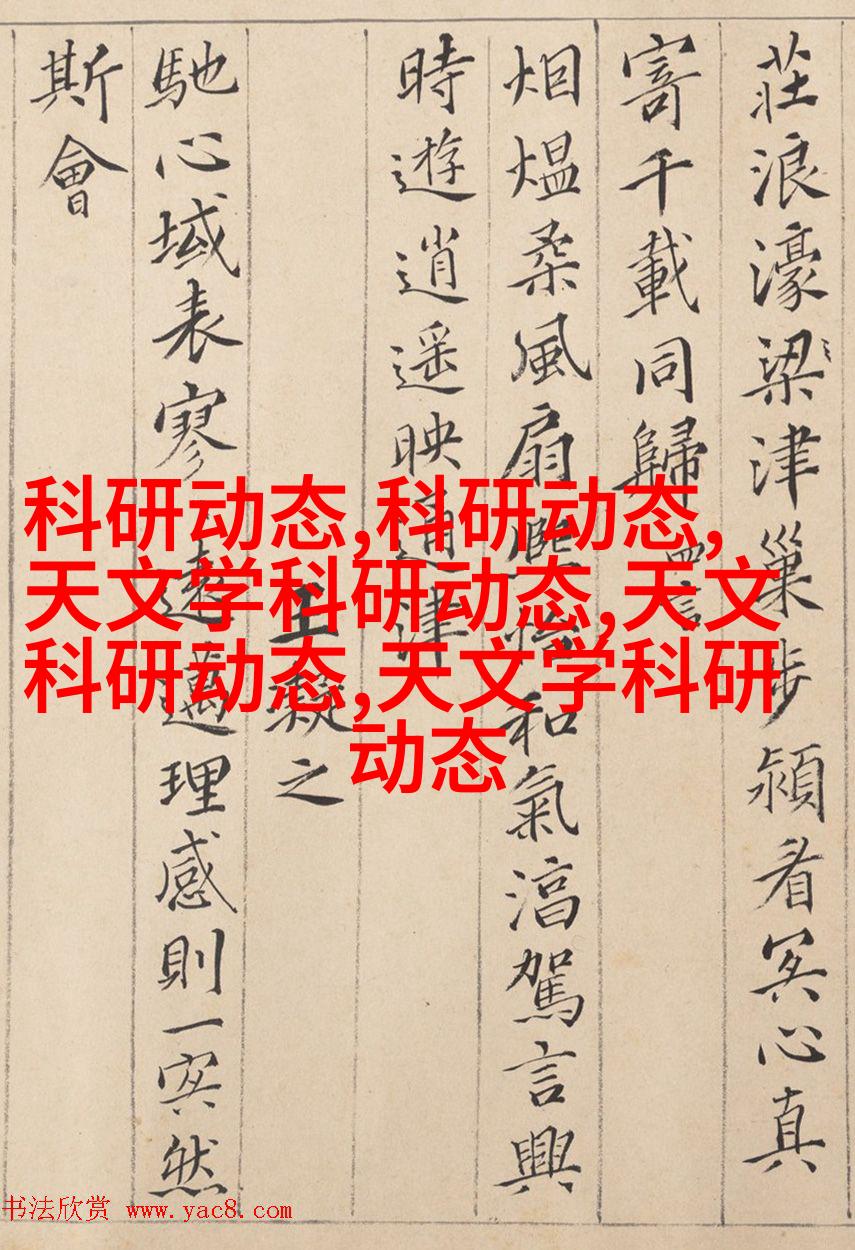 莊浪濠梁津巢步潁看冥心真
寄千載同歸 四言
烟熅柔風扇熙怡和氣淳駕言興
時遊逍遥映通津
王凝之
馳心域表寥遠邁理感則一冥然
斯會
科研动态,科研动态,
天文学科研动态,天文
科研动态,天文学科研
动态
书法欣赏 www.yac8.com